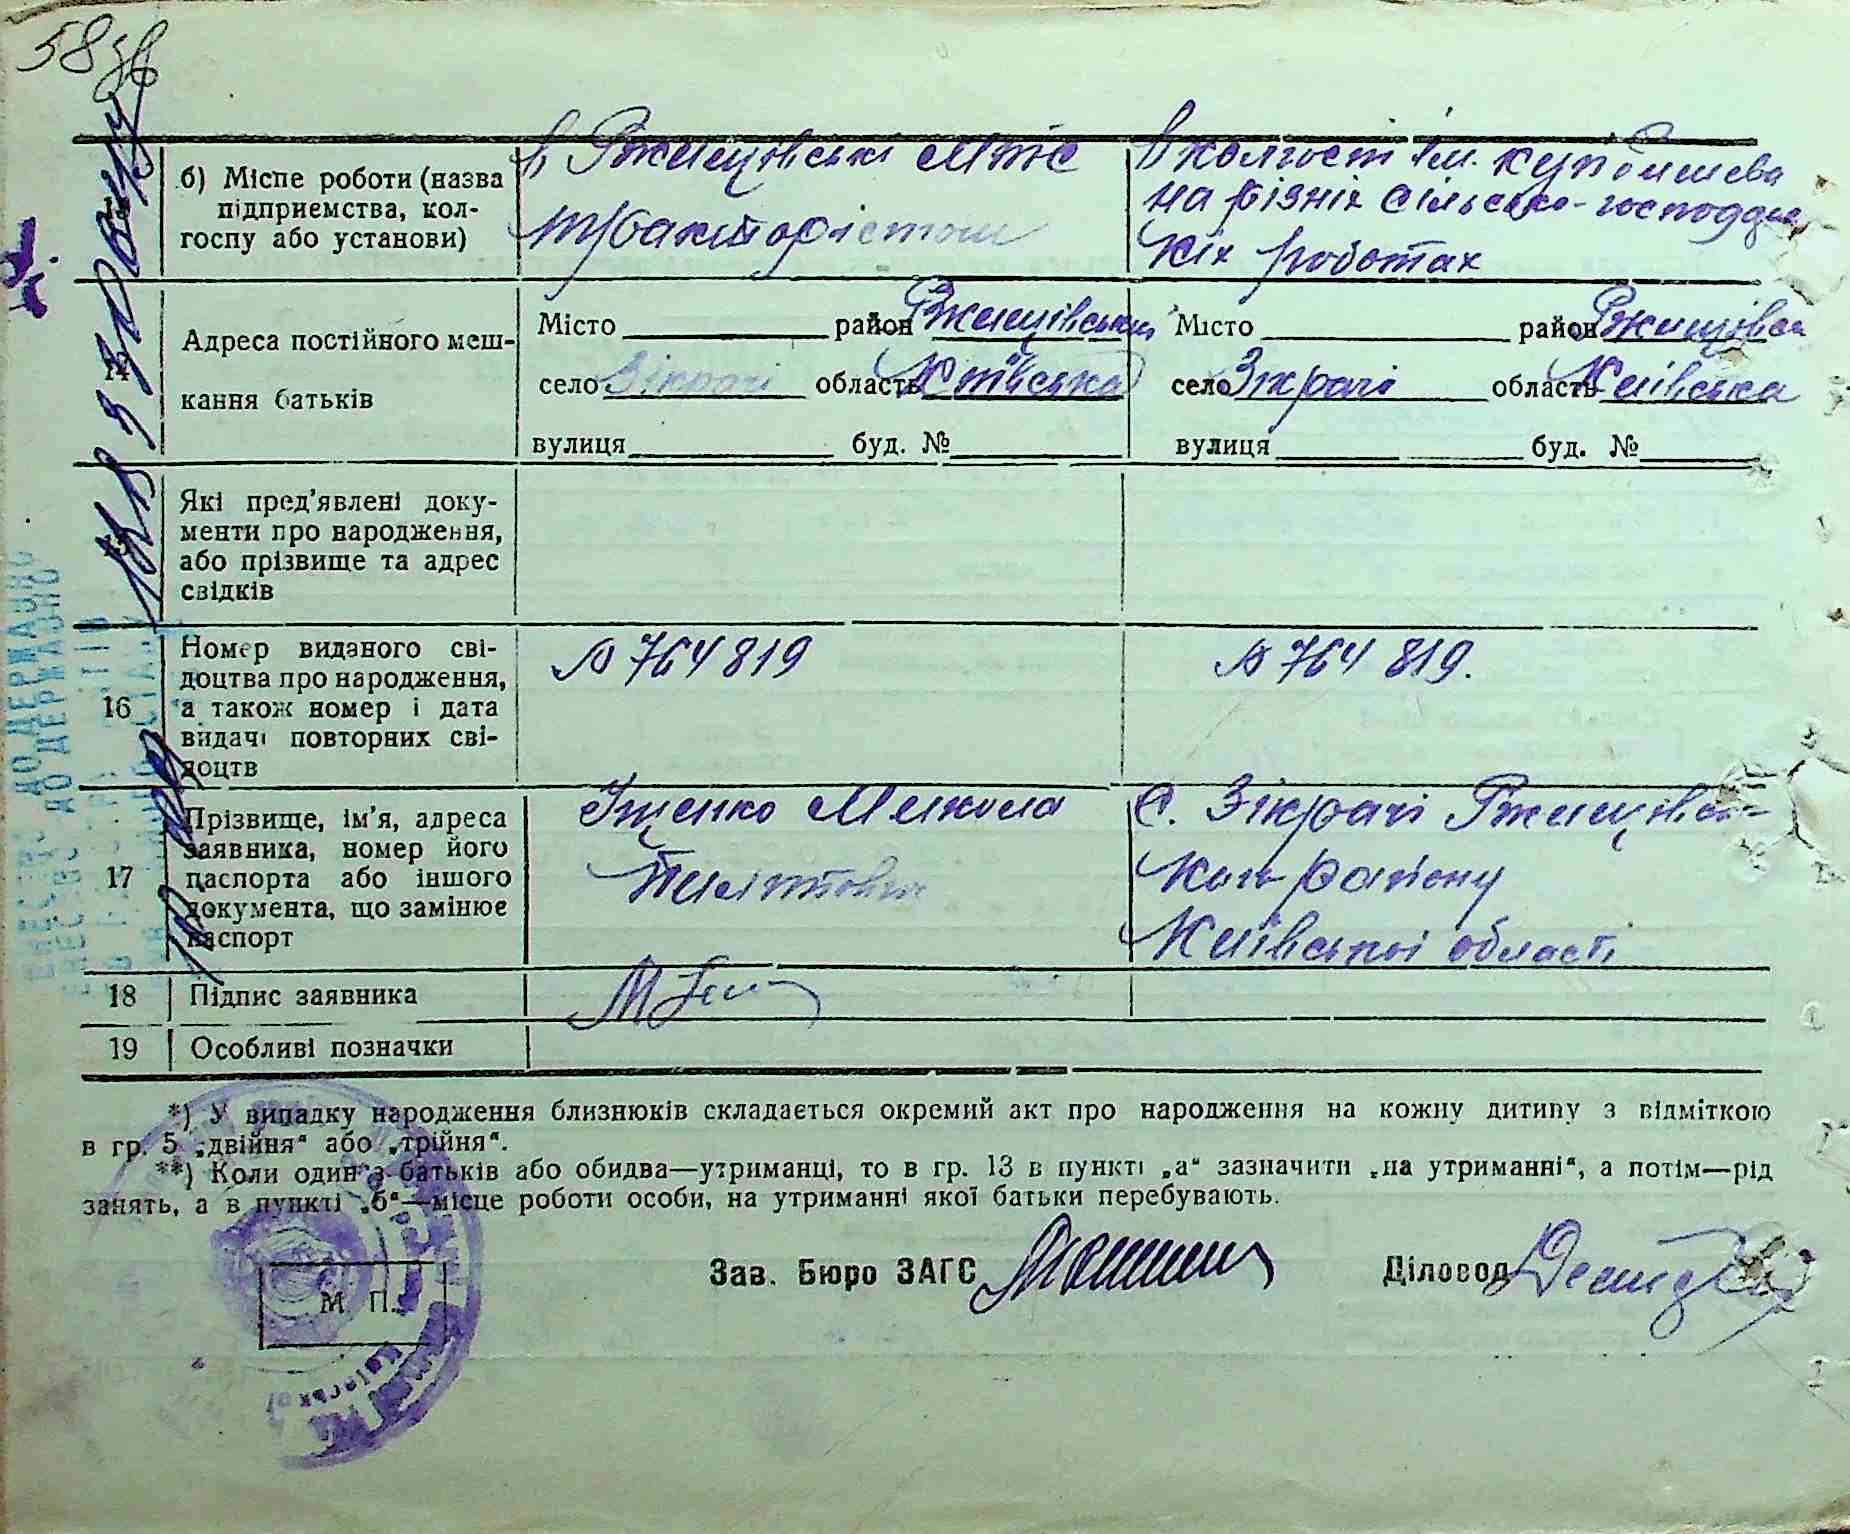 58 зв
б) Місце роботи (назва
підприємства, кол-
госпу або установи)
в Ржищівські МТС
трактористом
В колгоспі ім. Куйбишева
на різніх сільсько-господарс
ких роботах
14
Адреса постійного меш-
кання батьків
Місто район Ржищівський
село Зікрачі область Київська
вулиця буд. №
Місто район Ржищівськ
село Зікрачі область Київська
вулиця буд. №
15
Які пред'явлені доку-
менти про народження,
або прізвище та адрес
свідків
16
Номер виданого сві-
доцтва про народження,
а також номер і дата
видачі повторних сві-
доцтв
А 764819
А 764 819.
17
Прізвище, ім'я, адреса
заявника, номер його
паспорта або іншого
документа, що замінює
паспорт
Іщенко Микола
С. Зікрачі Ржищівсь-
кого району
Київської області
18 Підпис заявника
19 Особливі позначки
*) У випадку народження близнюків складається окремий акт про народження на кожну дитину з відміткою
в гр. 5 „двійня" або „трійня".
**) Коли один з батьків або обидва—утриманці, то в гр. 13 в пункті „а" зазначити „на утриманні", а потім—рід
занять, а в пункті „б"—місце роботи особи, на утриманні якої батьки перебувають.
Зав. Бюро ЗАГС
Діловод
М. П.
Київської